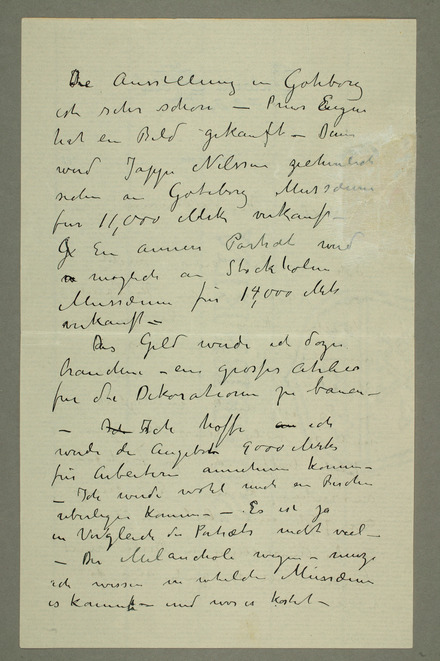 Die Ausstellung in Goteborg
ist sehr schön – Prins Eugen
hat ein Bild gekauft – Dann
wird Jappe Nilssen ziehmlich
sicher an Goteborg Mussæum
für 11,000 Mrks verkauft –
Ein anneres Portræt wird
moglich an Stockholm
Mussæum für 14,000 Mrks
verkauft –
Das Geld werde ich dazu
brauchen – ein grosses Atelier
für die Dekorationen zu bauen –
– Ich hoffe ich
werde die Angebot 9000 Mrks
für Arbeitern annehmen können –
– Ich werde wohl noch ein Bischen
überlegen können – – Es ist ja
in Vergleich der Portræts nicht viel –
– Die Melancholie wegen – muze
ich wissen in welche Mussæum
es kommt – und was es kostet –